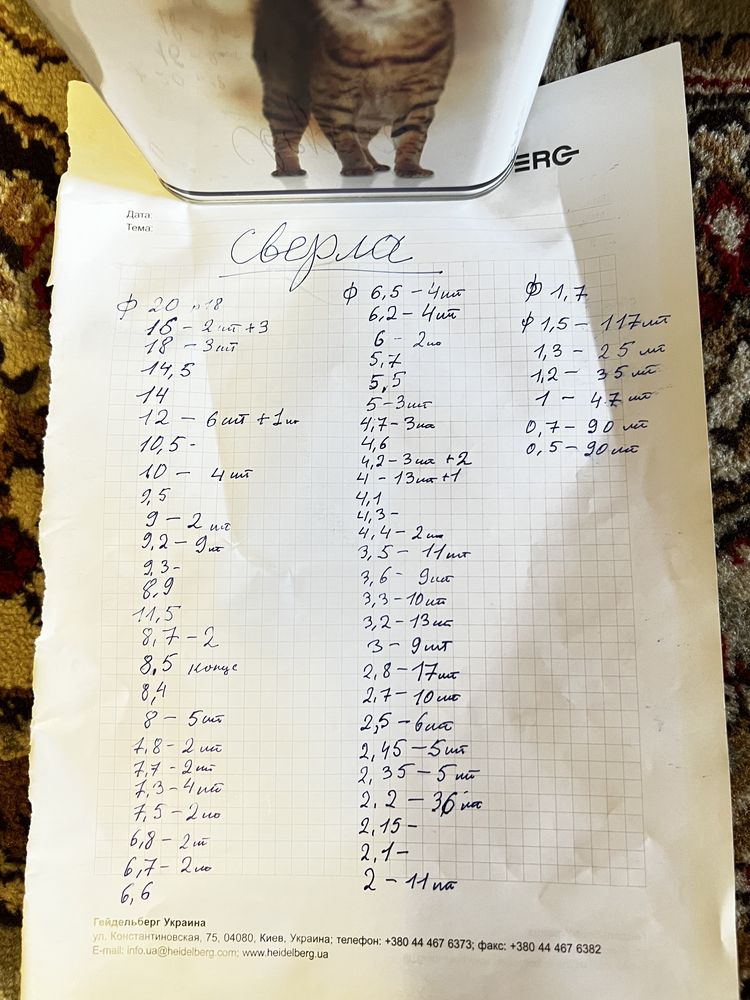 ERG
Дата:
Тема:
Сверла
ф 20 р18
16 – 2шт +3
18 – 3шт
14,5
14
12 – 6шт + 1шт
10,5 -
10 – 4шт
9,5
9 – 2шт
9,2 – 9шт
9,3 -
8,9
11,5
8,7 – 2
8,5 конус
8,4
8 – 5шт
7,8 – 2шт
7,7 – 2шт
7,3 – 4шт
7,5 – 2шт
6,8 – 2шт
6,7 – 2шт
6,6
ф 6,5 – 4шт
6,2 – 4шт
6 – 2шт
5,7
5,5
5 – 3шт
4,7 – 3шт
4,6
4,2 – 3шт +2
4 – 13шт +1
4,1
4,3 –
4,4 – 2шт
3,5 – 11шт
3,6 – 9шт
3,3 – 10шт
3,2 – 13шт
3 – 9шт
2,8 – 17шт
2,7 – 10шт
2,5 – 6шт
2,45 – 5шт
2,35 – 5шт
2,2 – 36шт
2,15 –
2,1 –
2 – 11шт
ф 1,7
ф 1,5 – 117шт
1,3 – 25шт
1,2 – 35шт
1 – 47шт
0,7 – 90шт
0,5 – 90шт
Гейдельберг Украина
ул. Константиновская, 75, 04080, Киев, Украина; телефон: +380 44 467 6373; факс: +380 44 467 6382
E-mail: info.ua@heidelberg.com; www.heidelberg.ua